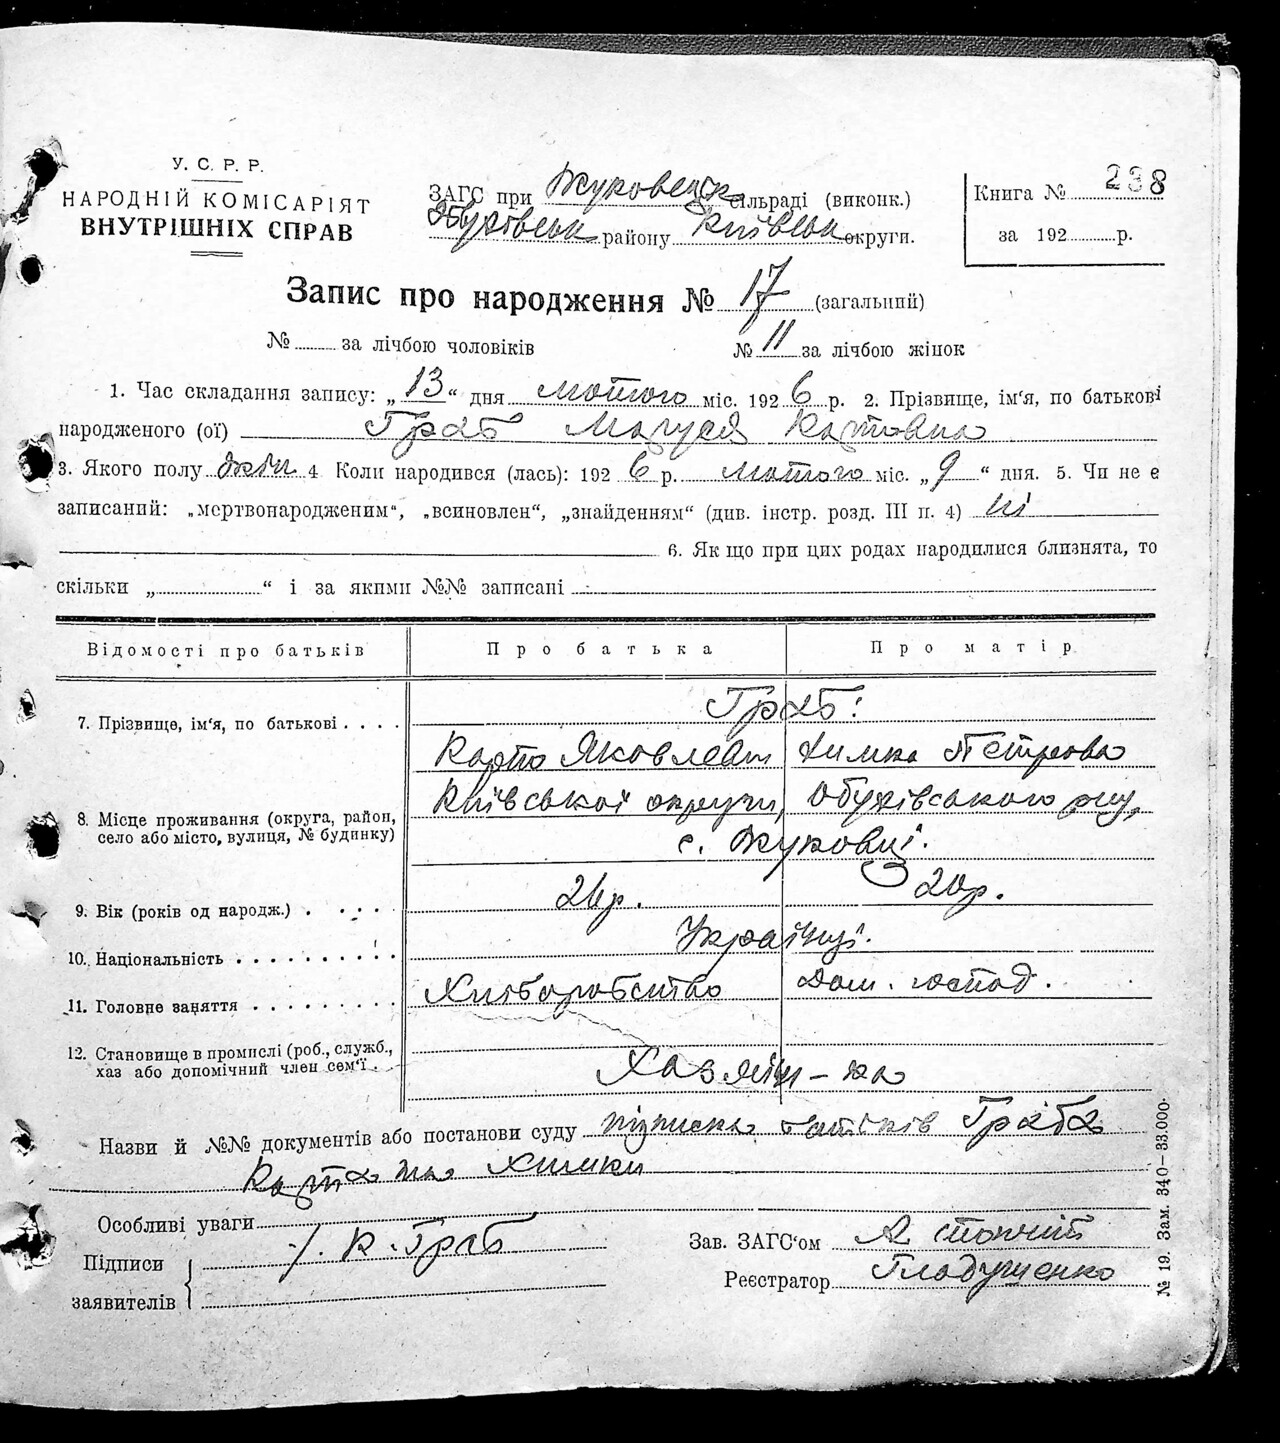 У. С. Р. Р.
НАРОДНІЙ КОМІСАРІЯТ
ВНУТРІШНІХ СПРАВ
ЗАГС при Жуковецьк сільраді (виконк.)
Обухівськ району Київськ округи.
Книга № 238
за 192 р.
Запис про народження № 17 (загальний)
№ за лічбою чоловіків № 11 за лічбою жінок
1. Час складання запису: „13“ дня лютого міс. 1926 р. 2. Прізвище, ім'я, по батькові
народженого (ої) Граб Маруся Карповна
3. Якого полу жін 4 Коли народився (лась): 1926 р. лютого міс. „9“ дня. 5. Чи не є
записаний: „мертвонародженим“, „всиновлен“, „знайденням“ (див. інстр. розд. III п. 4) ні
6. Як що при цих родах народилися близнята, то
скільки „ “ і за якими №№ записані
Відомості про батьків Про батька Про матір
7. Прізвище, ім'я, по батькові Граб:
Карпо Яковлевич Химка Петрова
8. Місце проживання (округа, район, село або місто, вулиця, № будинку) Київської округи, Обухівського р-ну,
с. Жуковці.
9. Вік (років од народж.) 26 р. 20 р.
10. Національність Українці.
11. Головне заняття Хліборобство Дом. господ.
12. Становище в промислі (роб., служб., хаз або допомічний член сем'ї Хазяїн-ка
Назви й №№ документів або постанови суду підписка батьків Граба
Карпа та Химки
Особливі уваги
Підписи заявителів К. Граб
Зав. ЗАГС'ом
Реєстратор Гладущенко
№ 19. Зам. 340—33.000.